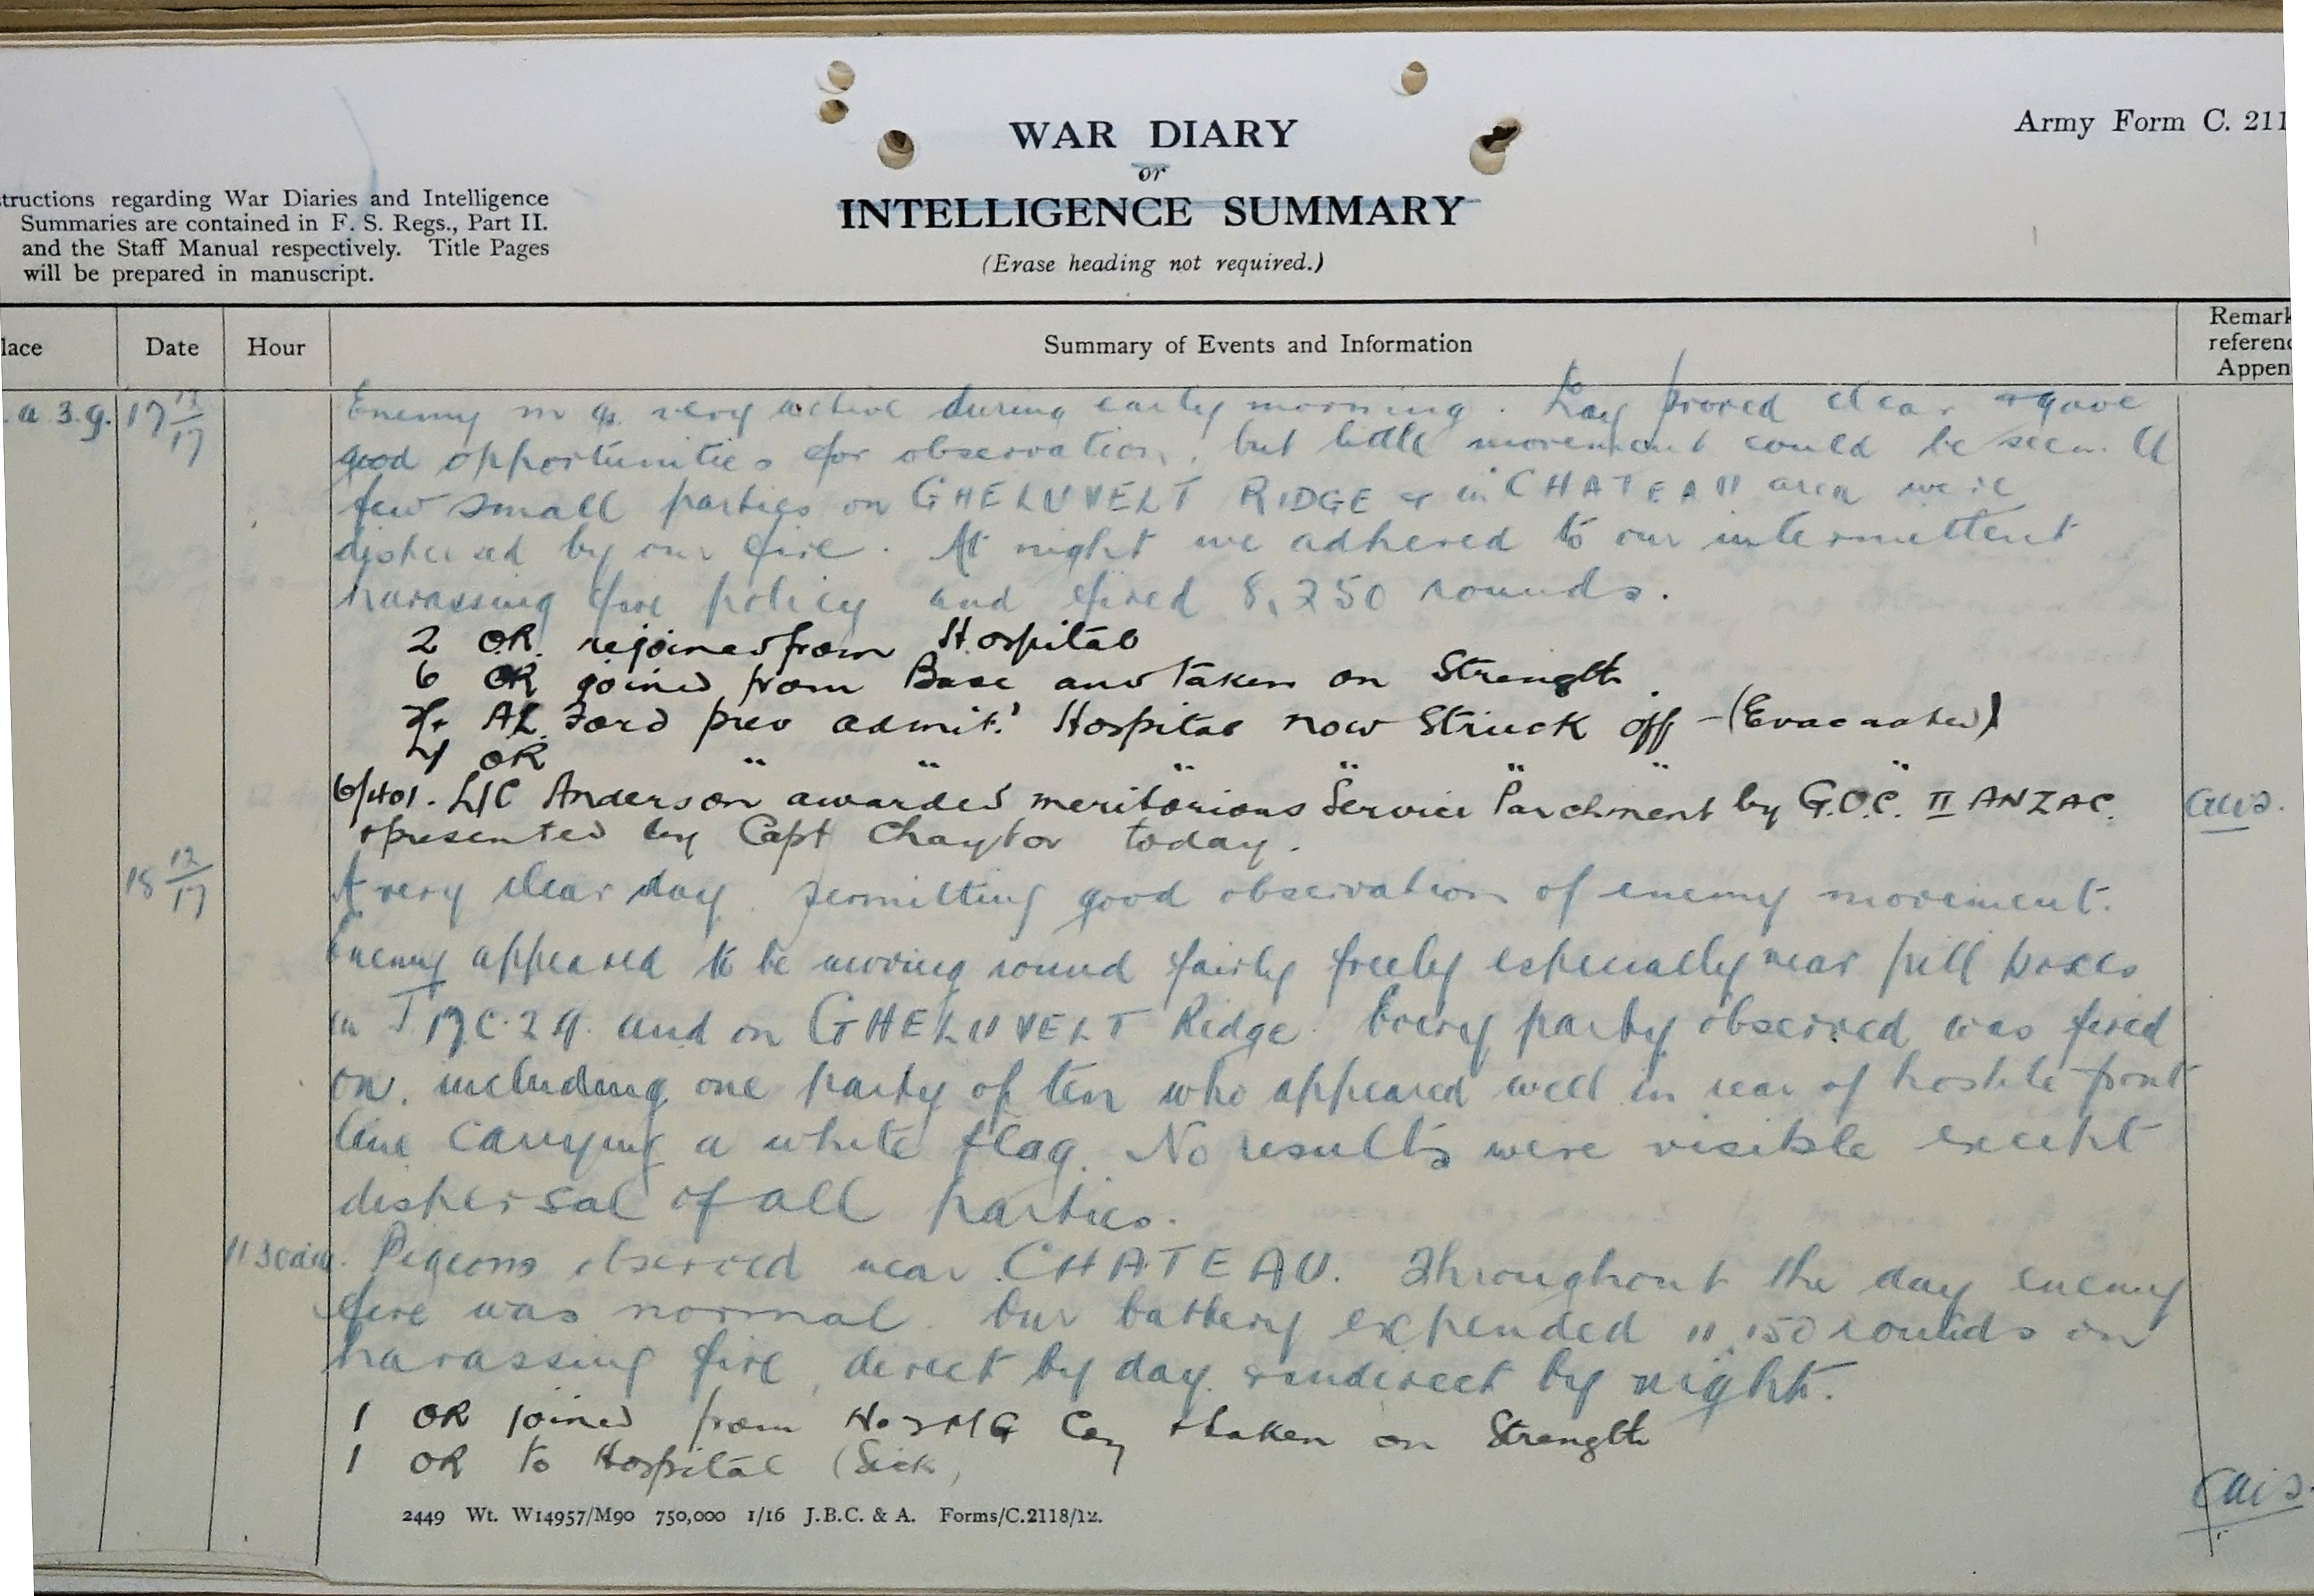 WAR DIARY
or
INTELLIGENCE SUMMARY
(Erase heading not required.)
Army Form C. 211
structions regarding War Diaries and Intelligence
Summaries are contained in F. S. Regs., Part II.
and the Staff Manual respectively. Title Pages
will be prepared in manuscript.
lace
Date
Hour
Summary of Events and Information
Remark
referenc
Appen
.a 3.9. 17 12/17 Enemy m gs very active during early morning. Day proved clear & gave
good opportunities for observation, but little movement could be seen. A
few small parties on GHELUVELT RIDGE & in CHATEAU area were
dispersed by our fire. At night we adhered to our intermittent
harassing fire policy and fired 8,250 rounds.
2 OR. rejoined from Hospital
6 OR joined from Base and taken on Strength.
Lt. AL. Ford prev admit. Hospital now Struck off - (Evacuated)
4 OR " " " " " " "
6/401. L/C Anderson awarded meritorious Service Parchment by G.O.C. II ANZAC.
& presented by Capt Chaytor today.
18 12/17 A very clear day permitting good observation of enemy movement.
Enemy appeared to be moving round fairly freely especially near pill boxes
in J 17.C.24. and on GHELUVELT Ridge. Every party observed was fired
on, including one party of ten who appeared well in rear of hostile front
line carrying a white flag. No results were visible except
dispersal of all parties.
11 30am. Pigeons observed near CHATEAU. Throughout the day enemy
fire was normal. Our battery expended 11,150 rounds on
harassing fire, direct by day & indirect by night.
1 OR joined from No 3 MG Coy & taken on Strength
1 OR to Hospital (Sick)
2449 Wt. W14957/M90 750,000 1/16 J.B.C. & A. Forms/C.2118/12.